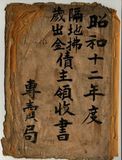 昭和十二年度
隔地拂
歲出金債主領收書
專賣局